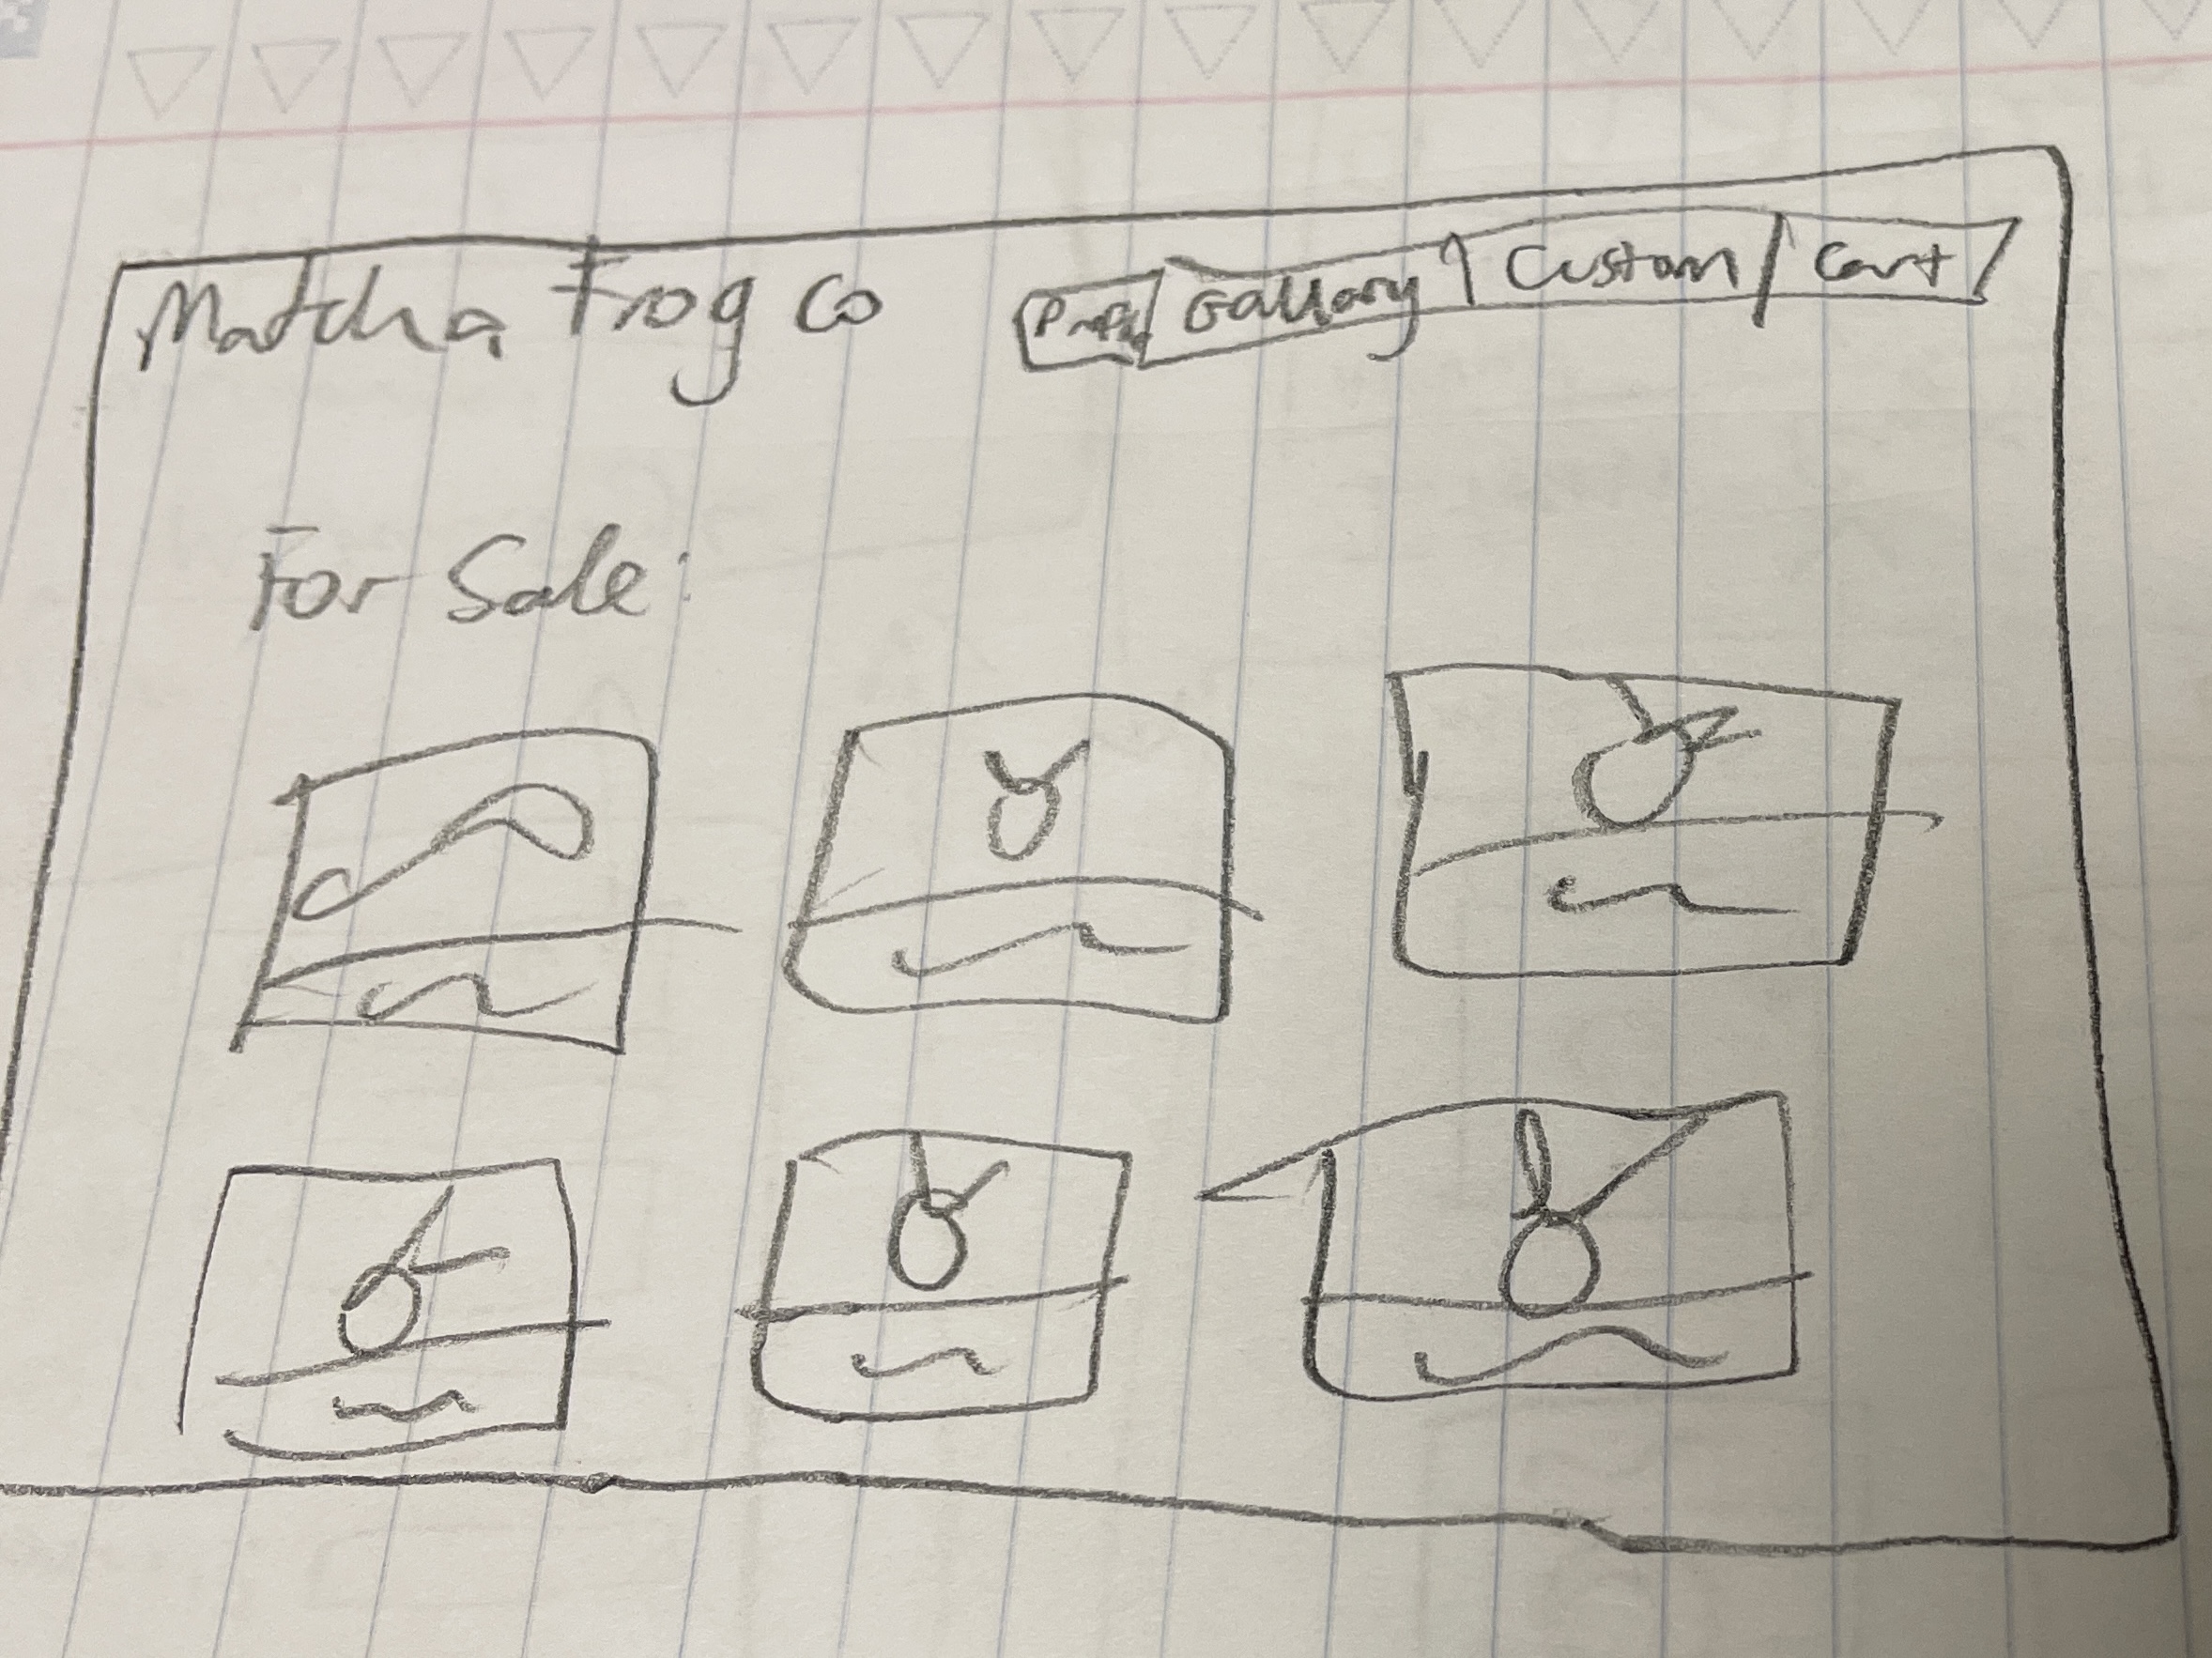 Matcha Frog Co Gallary Custom Cart
For Sale: